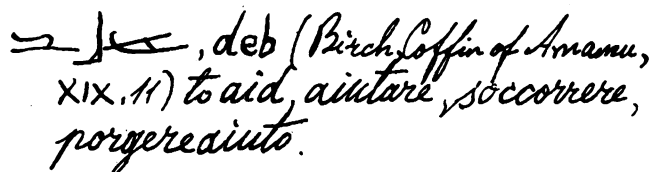 , deb (Birch, Coffin of Amamu,
XIX, 11) to aid, aiutare, soccorrere,
porgere aiuto.